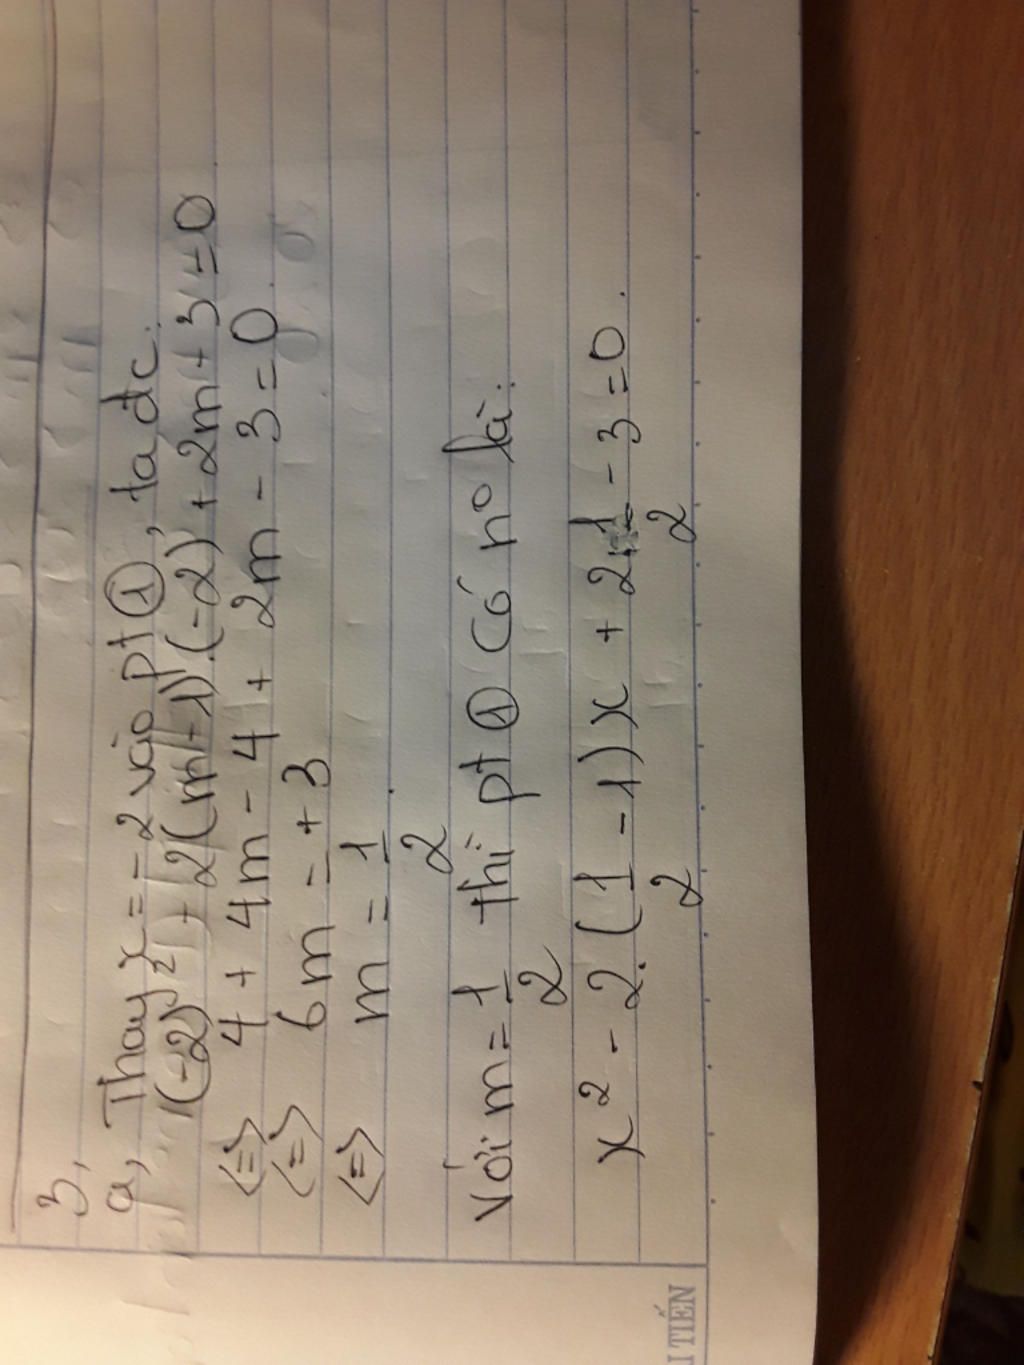 3,
a, Thay x = -2 vào pt ①, ta đc:
(-2)² + 2(m-1).(-2) + 2m + 3 = 0
<=> 4 + 4m - 4 + 2m - 3 = 0
<=> 6m = + 3
<=> m = 1/2
Với m = 1/2 thì pt ① có nº là:
x² - 2.(1/2 - 1)x + 2.1/2 - 3 = 0.
I TIẾN